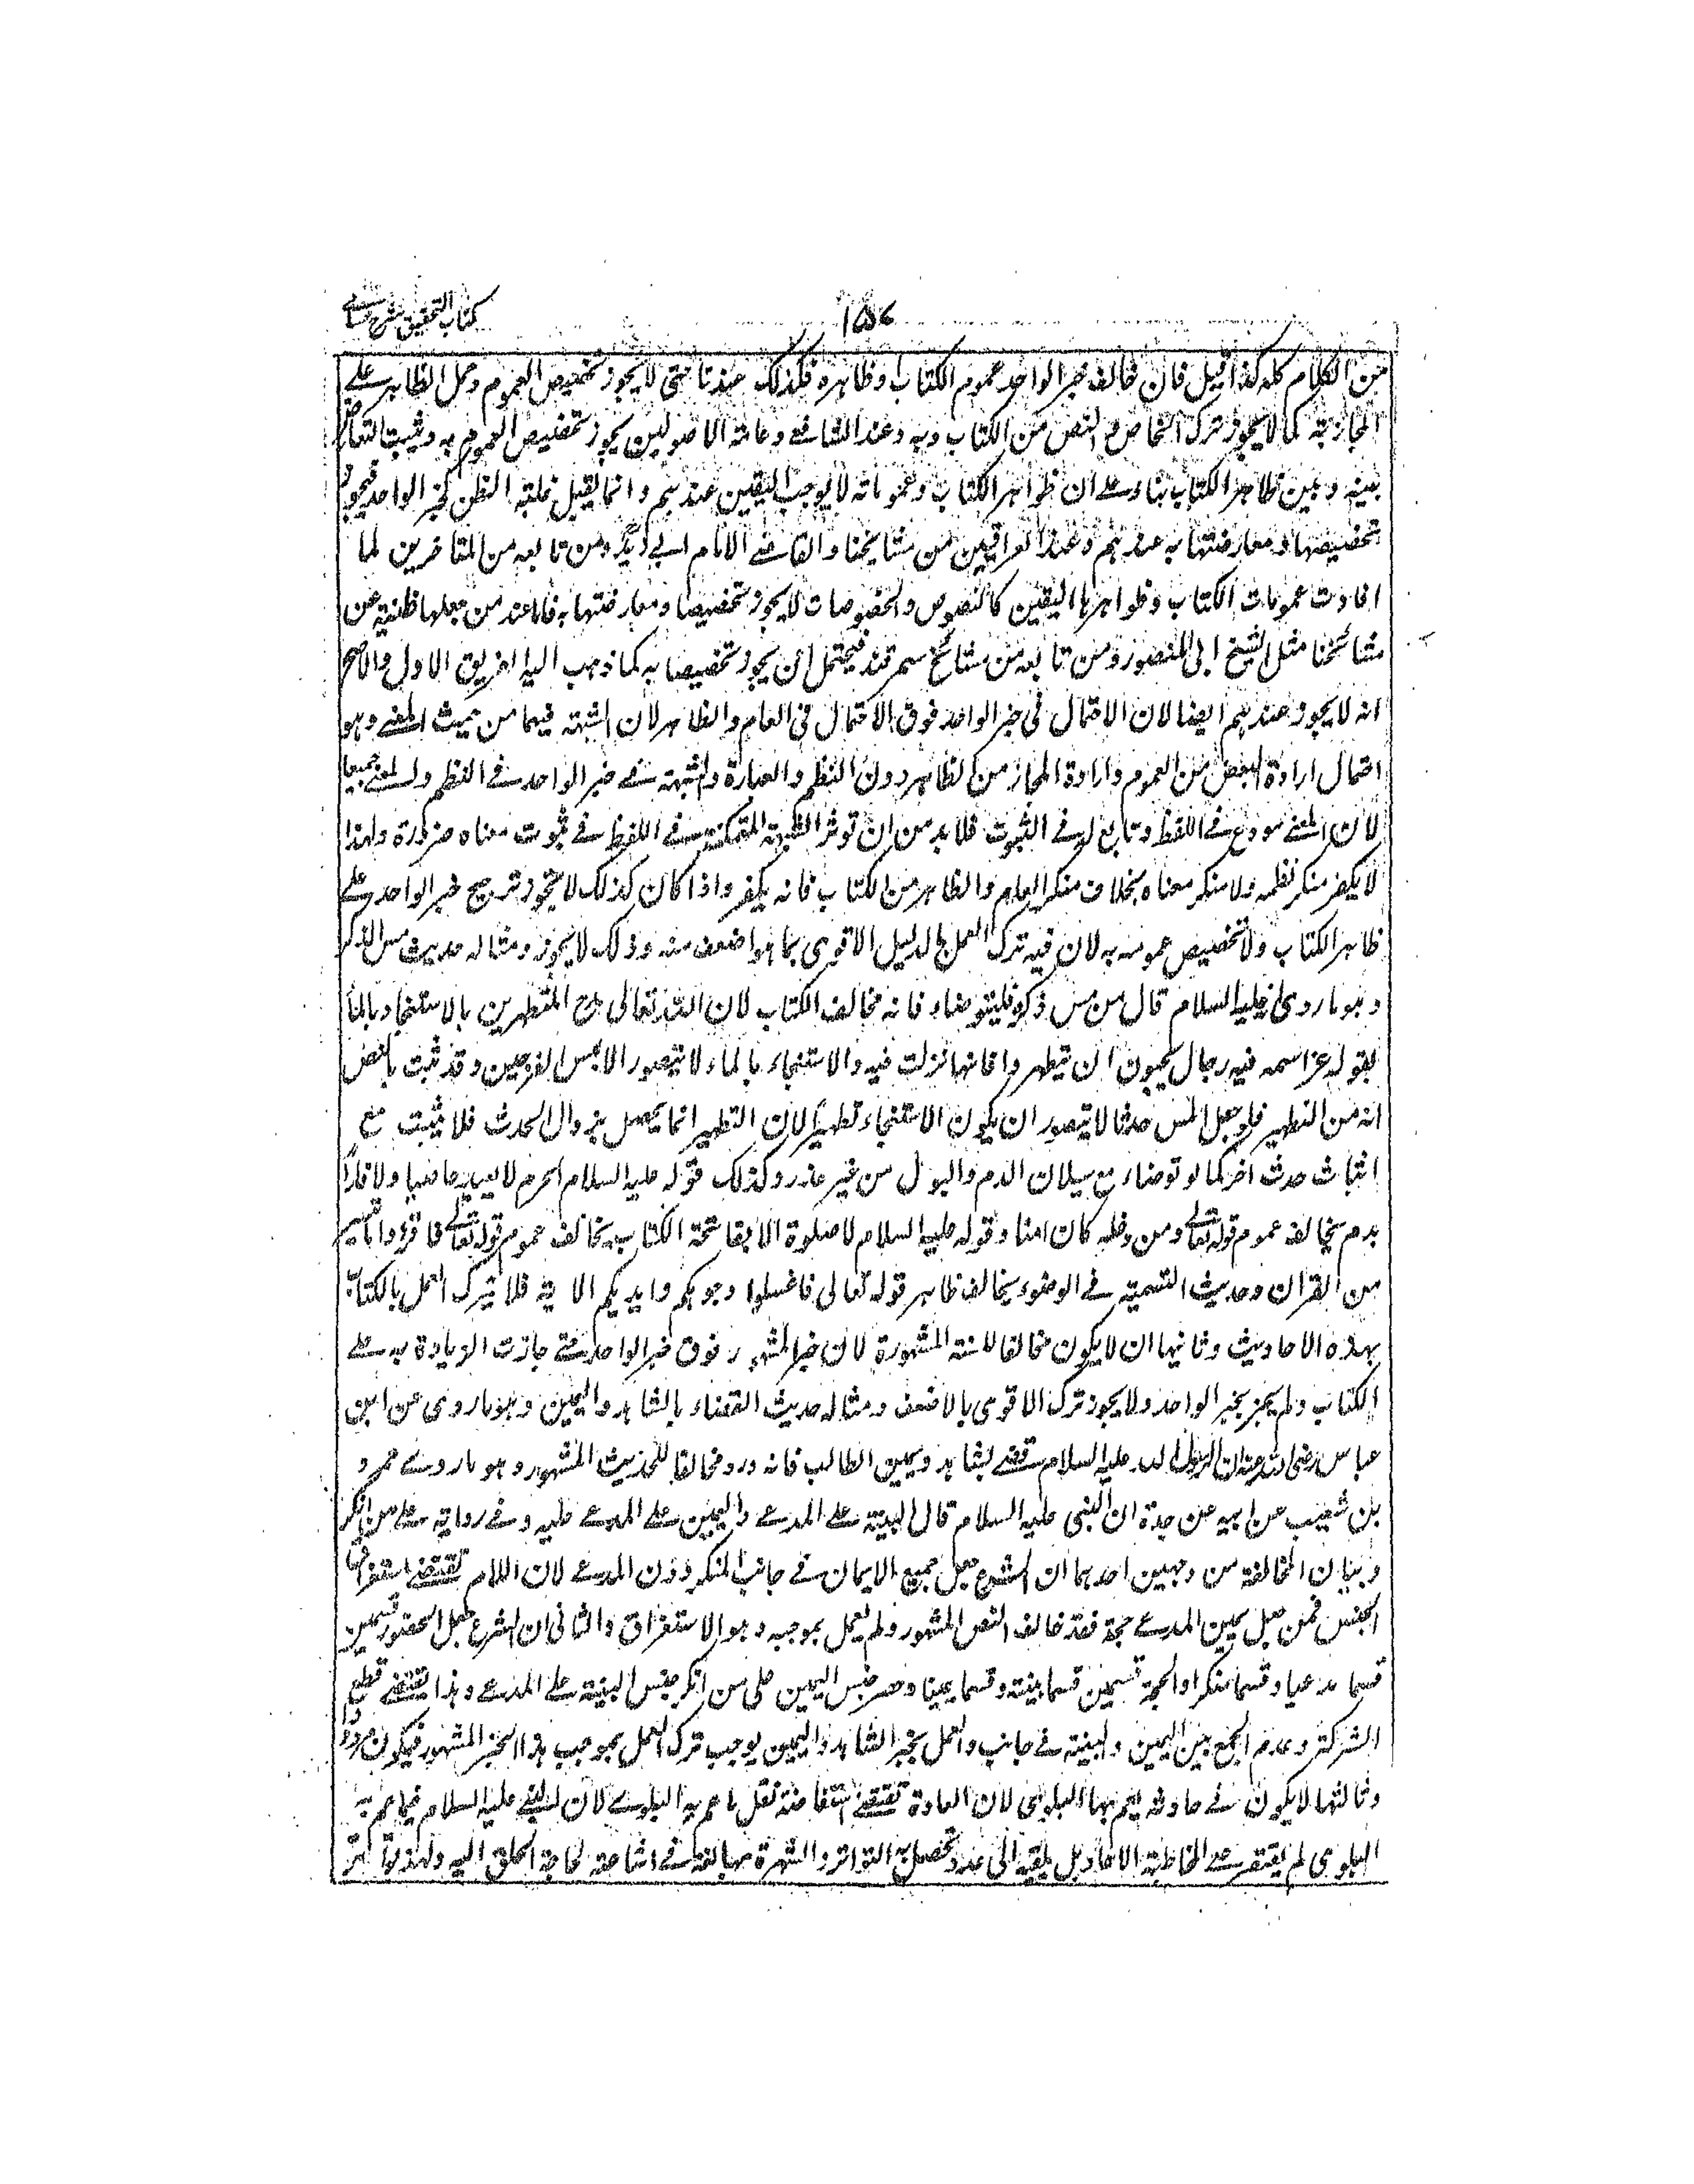 كتاب التحقيق شرح حسامی
۱۵۷
من الكلام كله كذا قيل فان خالف خبر الواحد عموم الكتاب وظاهره فكذلك عندنا حتى لا يجوز تخصيص العموم وحمل الظاهر على
المجاز به كما لا يجوز ترك الخاص و النص من الكتاب وبه وعند الشافعي وعامة الاصوليين يجوز تخصيص العموم به ويثبت التعارض
بينه وبين ظاهر الكتاب بناء على ان ظواهر الكتاب وعموماته لا يوجب اليقين عندهم وانما يفيد غلبة الظن كخبر الواحد فيجوز
تخصيصها ومعارضتها به عندهم وعند العراقيين من مشايخنا والقاضي الامام ابي زيد ومن تابعه من المتاخرين لما
افادت عمومات الكتاب وظواهرها اليقين كالنصوص والخصوصات لا يجوز تخصيصها ومعارضتها به فاما عند من جعلها ظنية من
مشائخنا مثل الشيخ ابي المنصور ومن تابعه من مشائخ سمرقند فيحتمل ان يجوز تخصيصها به كما ذهب اليه الفريق الاول والاصح
انه لا يجوز عندهم ايضا لان الاحتمال في خبر الواحد فوق الاحتمال في العام والظاهر لان الشبهة فيهما من حيث المعنى وهو
احتمال ارادة البعض من العموم وارادة المجاز من الظاهر دون النظم والعبارة والشبهة في خبر الواحد في النظم والمعنى جميعا
لان المعنى مودع في اللفظ وتابع له في الثبوت فلا بد من ان تؤثر الشبهة المتمكنة في اللفظ في ثبوت معناه ضرورة ولهذا
لا يكفر منكر لفظه ولا منكر معناه بخلاف منكر العام والظاهر من الكتاب فانه يكفر واذا كان كذلك لا يجوز ترجيح خبر الواحد على
ظاهر الكتاب ولا تخصيص عمومه به لان فيه ترك العمل بالدليل الاقوى بما هو اضعف منه وذلك لا يجوز ومثاله حديث مس الذكر
وهو ما روى انه عليه السلام قال من مس ذكره فليتوضاء فانه مخالف الكتاب لان الله تعالى مدح المتطهرين بالاستنجاء بالماء
بقوله عز اسمه فيه رجال يحبون ان يتطهروا فانها نزلت فيه والاستنجاء بالماء لا يتصور الا بمس الفرجين وقد ثبت بالنص
انه من التطهير فلو جعل المس حدثا لا يتصور ان يكون الاستنجاء تطهيرا لان التطهير انما يحصل بزوال الحدث فلا يثبت مع
اثبات حدث اخر كما لو توضاء مع سيلان الدم والبول من غير عذر وكذلك قوله عليه السلام الحرم لا يعيذ عاصيا ولا فارا
بدم يخالف عموم قوله تعالى ومن دخله كان امنا وقوله عليه السلام لا صلوة الا بفاتحة الكتاب يخالف عموم قوله تعالى فاقرؤا ما تيسر
من القرآن وحديث التسمية في الوضوء يخالف ظاهر قوله تعالى فاغسلوا وجوهكم وايديكم الاية فلا يترك العمل بالكتاب
بهذه الاحاديث وثانيها ان لا يكون مخالفا للسنة المشهورة لان خبر المشهور فوق خبر الواحد حتى جازت الزيادة به على
الكتاب ولم يجز بخبر الواحد ولا يجوز ترك الاقوى بالاضعف ومثاله حديث القضاء بالشاهد واليمين وهو ما روى عن ابن
عباس رضى الله عنه ان الرسول عليه السلام قضى بشاهد ويمين الطالب فانه ورد مخالفا للحديث المشهور وهو ما روى عمرو
بن شعيب عن ابيه عن جده ان النبى عليه السلام قال البينة على المدعي واليمين على المدعى عليه وفي رواية على من انكر
وبيان المخالفة من وجهين احدهما ان الشرع جعل جميع الايمان في جانب المنكر دون المدعي لان اللام تقتضي استغراق
الجنس فمن جعل يمين المدعي حجة فقد خالف النص المشهور ولم يعمل بموجبه وهو الاستغراق والثانى ان الشرع جعل الخصوم قسمين
قسما مدعيا وقسما منكرا والحجة قسمين قسما بينة وقسما يمينا وحصر جنس اليمين على من انكر جنس البينة على المدعي وهذا يقتضي قطع
الشركة وعدم الجمع بين اليمين والبينة في جانب والعمل بخبر الشاهد واليمين يوجب ترك العمل بموجب هذا الخبر المشهور فيكون مردودا
وثالثها لا يكون في حادثة يعم بها البلوى لان العادة تقتضي استفاضة نقل ما عم به البلوى لان النبي عليه السلام فيما عم به
البلوى لم يقتصر على مخاطبة الاحاد بل يلقيه الى عدد يحصل به التواتر والشهرة مبالغة في اشاعته لحاجة الخلق اليه ولهذا تواتر